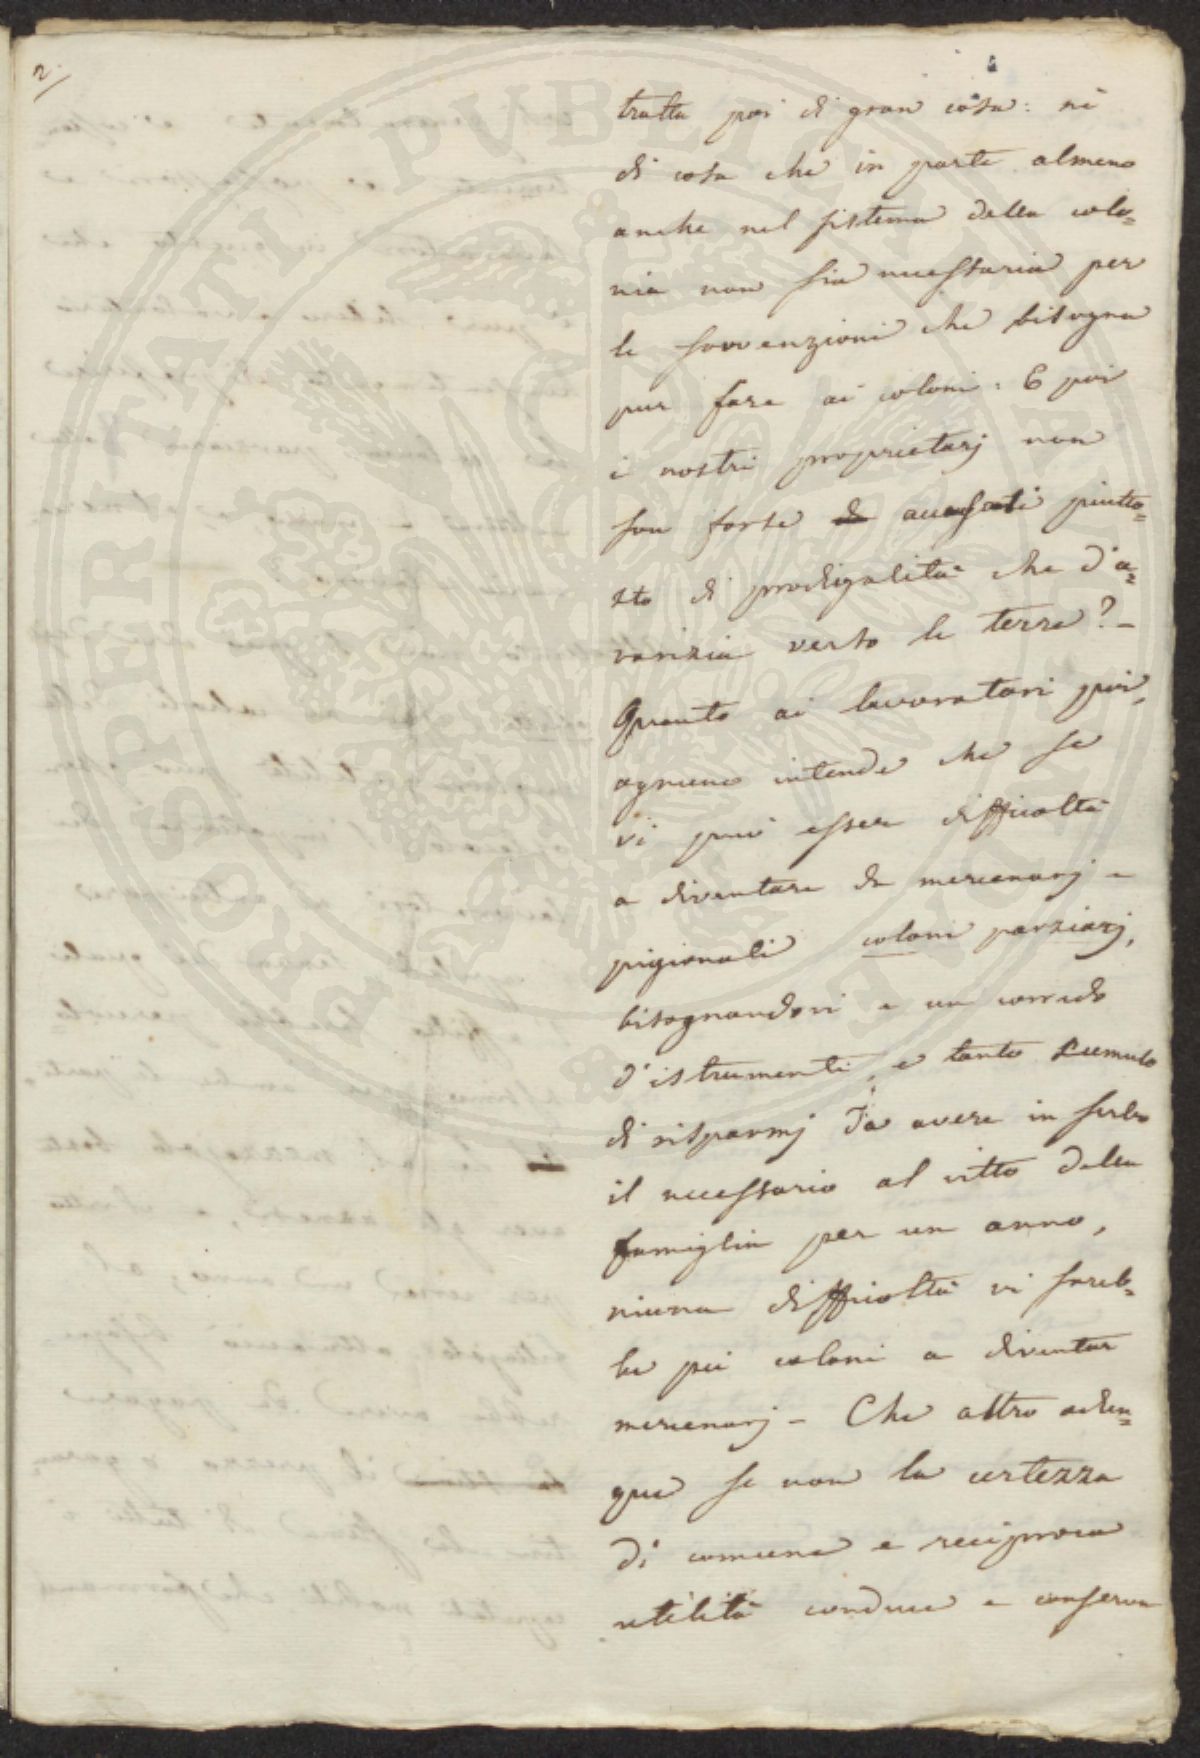 2.
tratta poi di gran cosa: nè
di cosa che in parte almeno
anche nel sistema della colo=
nia non sia necessaria per
le sovvenzioni che bisogna
pur fare ai coloni: E poi
i nostri proprietarj non
son forse accusati piutto=
sto di prodigalità che d'a=
varizia verso le terre? -
Quanto ai lavoratori poi,
ognuno intende che se
vi può esser difficoltà
a diventare da mercenarj e
pigionali coloni parziarj,
bisognandovi e un corredo
d'istrumenti, e tanto cumulo
di risparmj da avere in serbo
il necessario al vitto della
famiglia per un anno,
niuna difficoltà vi sareb=
be pei coloni a diventar
mercenarj - Che altro adun=
que se non la certezza
di comune e reciproca
utilità conduce e conserva
PROSPERITATI PVBLICAE